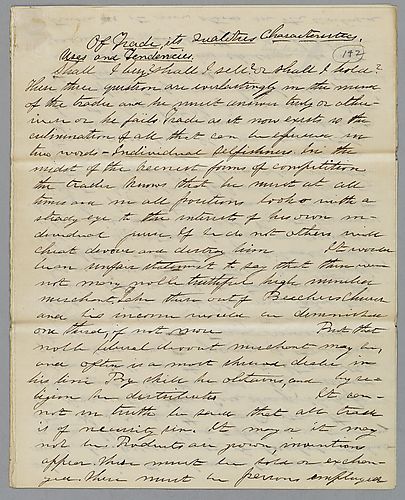 Of Trade, its Qualities Characteristics,
Uses and Tendencies.
(142)
Shall I buy? Shall I sell? or shall I hold?
These three question are everlastingly in the mind
of the trader and he must answer truly or other
wise or he fails Trade as it now exists is the
culmination of all that can be expressed in
two words - Individual Selfishness. In the
midst of the keenest forms of competition
the trader knows that he must at all
times and in all positions look with a
steady eye to the interest of his own in-
dividual purse If he do not others will
cheat devour and destroy him It would
be an unfair statement to say that there were
not many noble truthful high minded
merchants, take them out of Beechers Church
and his income would be diminished
one third, if not more But that
noble liberal devout merchant may be,
and often is a most shrewd dealer in
his line By skill he obtains, and by re-
ligion he distributes It can-
not in truth be said that all trade
is of necessity sin. It may or it may
not be. Products are grown, inventions
appear. These must be sold or exchan-
ged. There must be persons employed